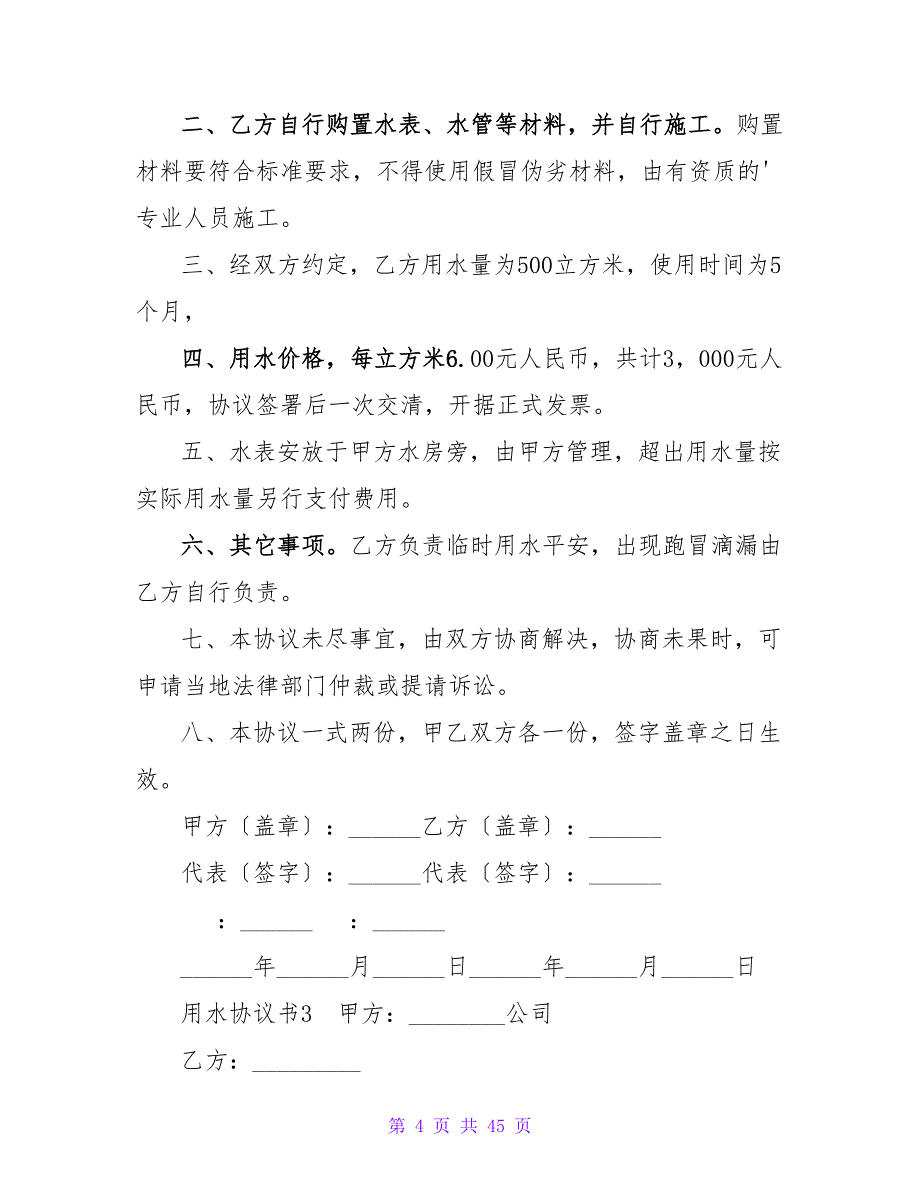 二、乙方自行购置水表、水管等材料，并自行施工。购置
材料要符合标准要求，不得使用假冒伪劣材料，由有资质的'
专业人员施工。
三、经双方约定，乙方用水量为500立方米，使用时间为5
个月，
四、用水价格，每立方米6.00元人民币，共计3，000元人
民币，协议签署后一次交清，开据正式发票。
五、水表安放于甲方水房旁，由甲方管理，超出用水量按
实际用水量另行支付费用。
六、其它事项。乙方负责临时用水平安，出现跑冒滴漏由
乙方自行负责。
七、本协议未尽事宜，由双方协商解决，协商未果时，可
申请当地法律部门仲裁或提请诉讼。
八、本协议一式两份，甲乙双方各一份，签字盖章之日生
效。
甲方〔盖章〕：______乙方〔盖章〕：______
代表〔签字〕：______代表〔签字〕：______
：______ ：______
______年______月______日______年______月______日
用水协议书3 甲方：________公司
乙方：_________
第 4 页 共 45 页